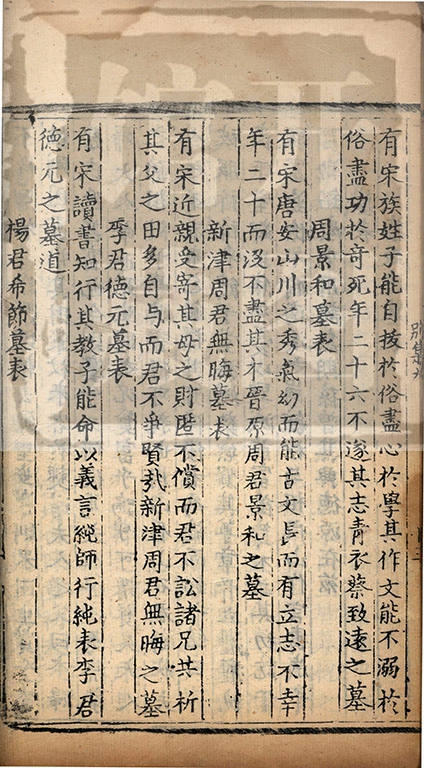 有宋族姓子能自拔於俗盡心於學其作文能不溺於
俗盡功於奇死年二十六不遂其志青衣蔡致遠之墓
周景和墓表
有宋唐安山川之秀氣幻而能古文長而有立志不幸
年二十而沒不盡其才晉原周君景和之墓
新津周君無晦墓表
有宋近親受寄其母之財匿不償而君不訟諸兄共析
其父之田多自与而君不爭賢㢤新津周君無晦之墓
李君德元墓表
有宋讀書知行其教子能命以義言純師行純表李君
德元之墓道
楊君希節墓表